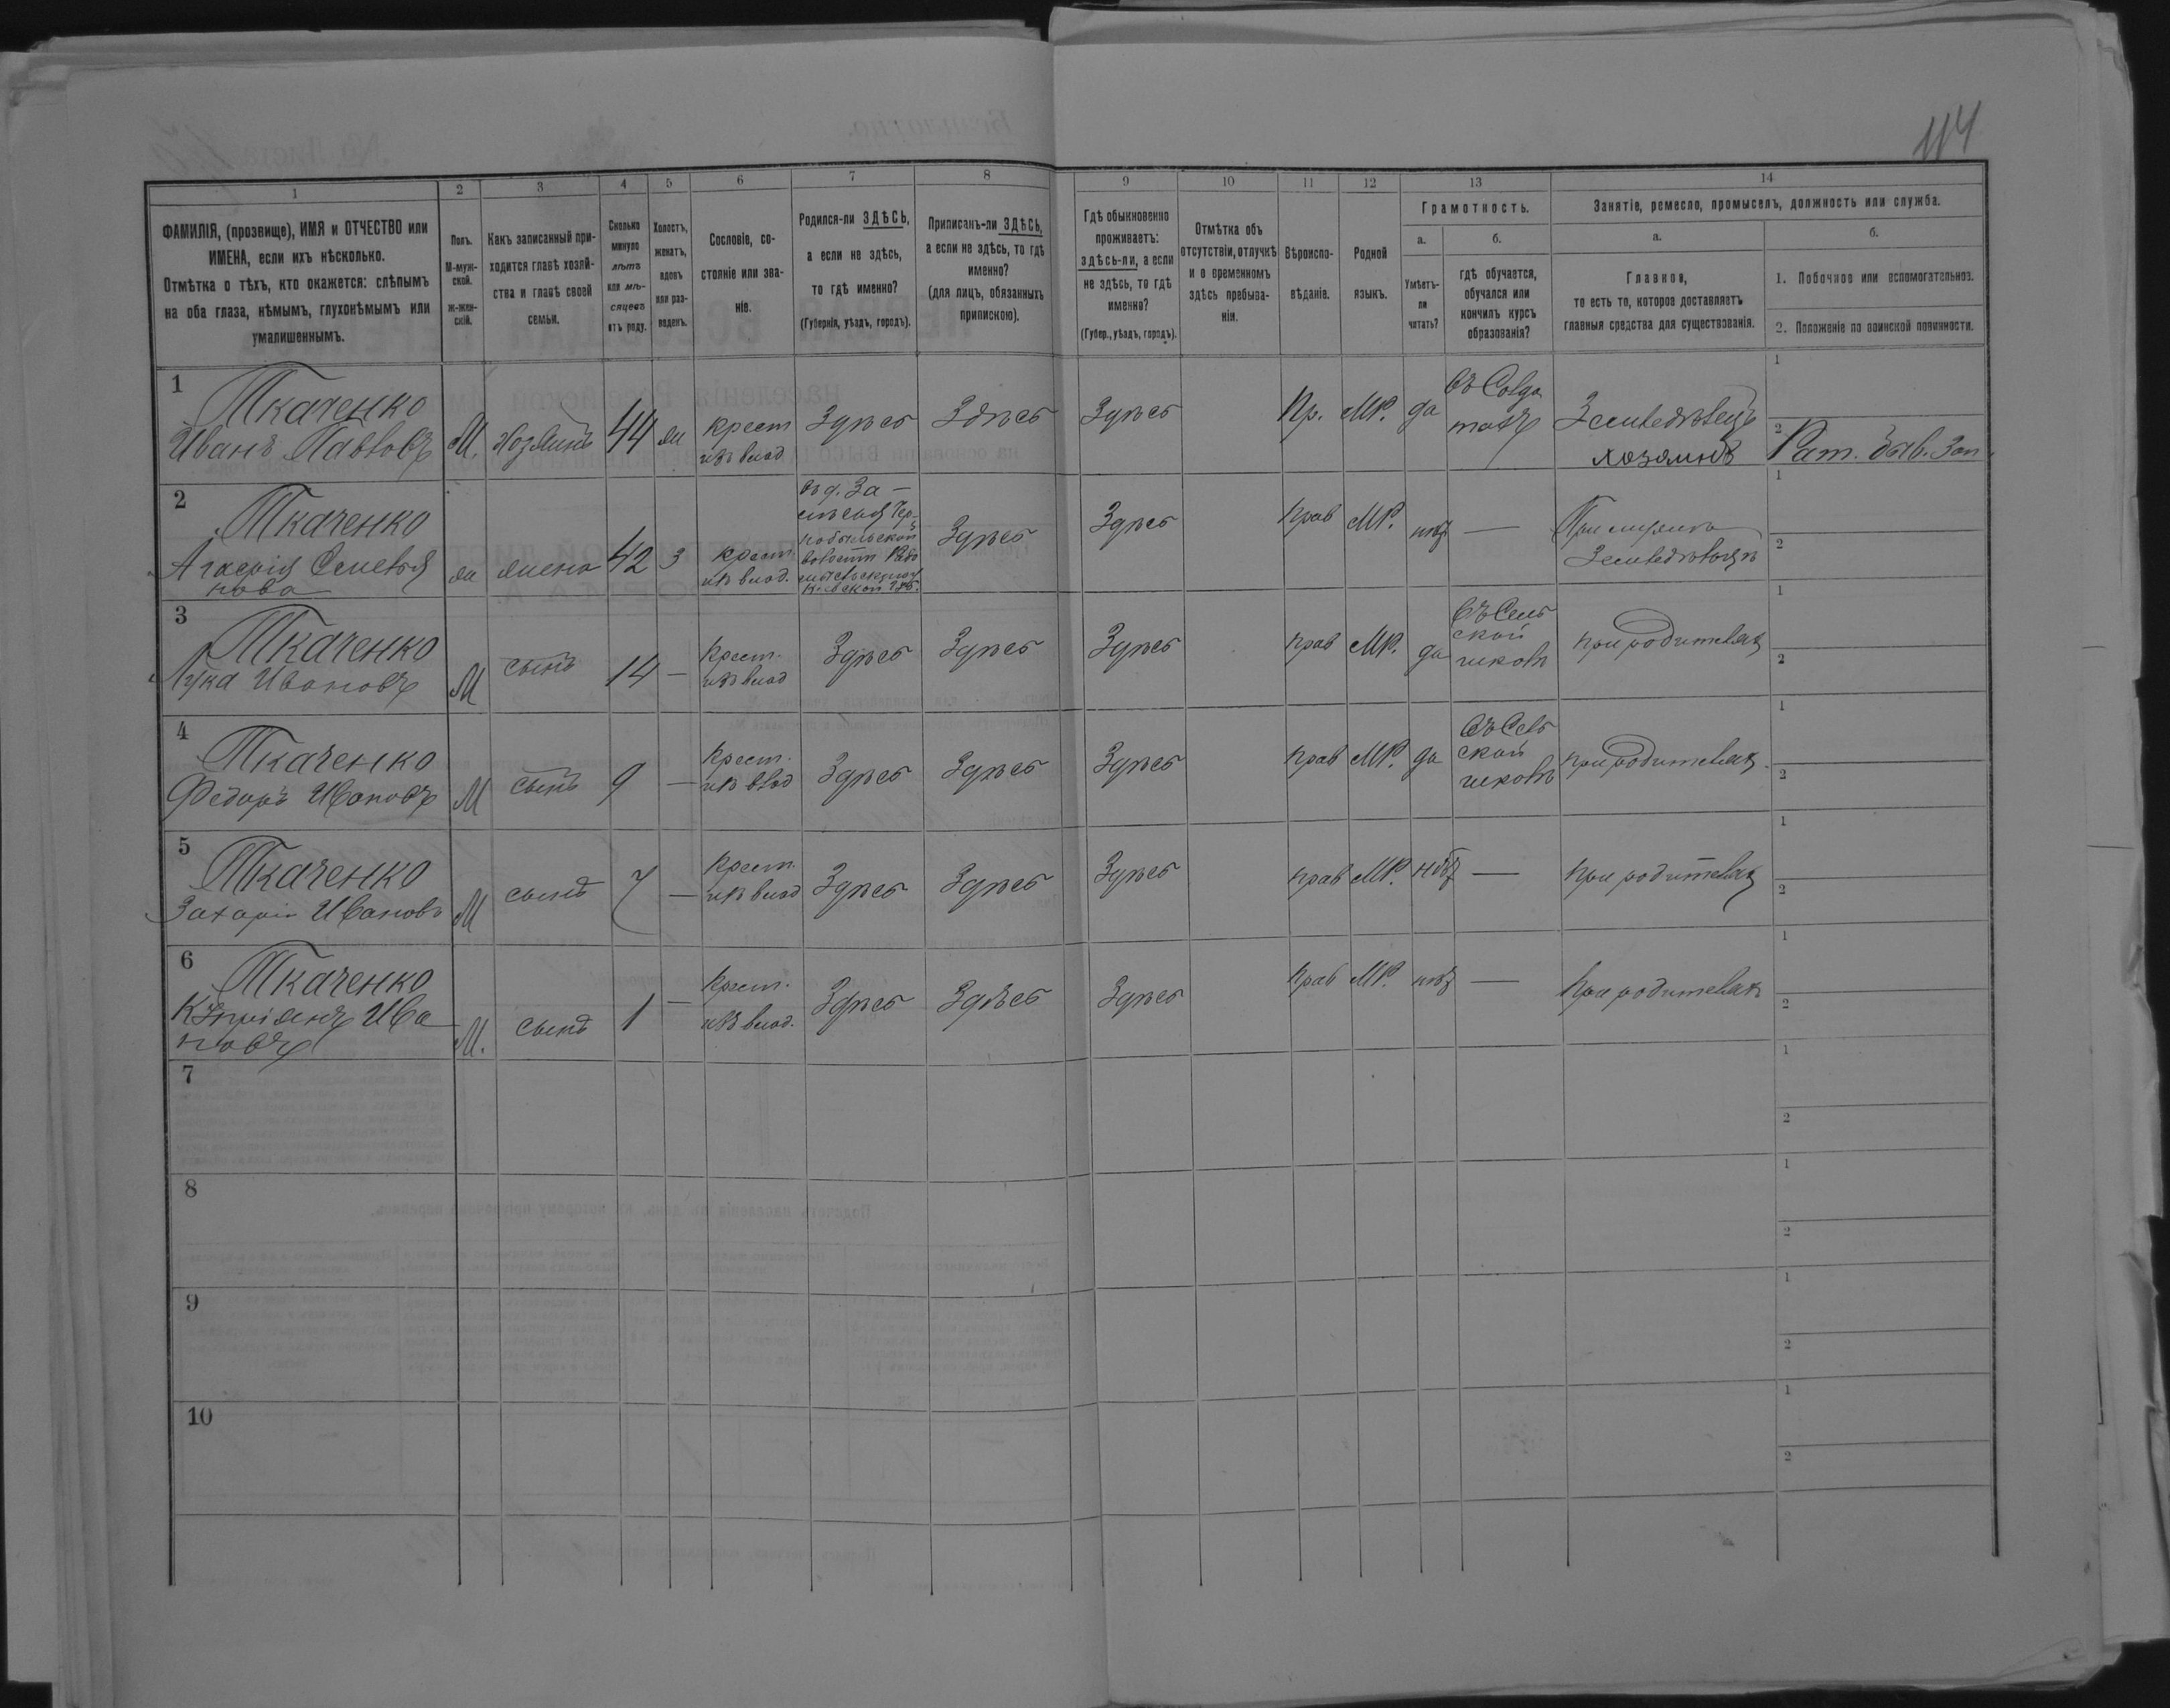 114
1 2 3 4 5 6 7 8 9 10 11 12 13 14
ФАМИЛІЯ, (прозвище), ИМЯ и ОТЧЕСТВО или
ИМЕНА, если ихъ нѣсколько.
Отмѣтка о тѣхъ, кто окажется: слѣпымъ
на оба глаза, нѣмымъ, глухонѣмымъ или
умалишеннымъ.
Полъ.
М-муж-
ской.
ж-жен-
скій.
Какъ записанный при-
ходится главѣ хозяй-
ства и главѣ своей
семьи.
Сколько
минуло
лѣтъ
или мѣ-
сяцевъ
отъ роду.
Холостъ,
женатъ,
вдовъ
или раз-
веденъ.
Сословіе, со-
стояніе или зва-
ніе.
Родился-ли ЗДѢСЬ,
а если не здѣсь,
то гдѣ именно?
(Губернія, уѣздъ, городъ).
Приписанъ-ли ЗДѢСЬ,
а если не здѣсь, то гдѣ
именно?
(для лицъ, обязанныхъ
припискою).
Гдѣ обыкновенно
проживаетъ:
здѣсь-ли, а если
не здѣсь, то гдѣ
именно?
(Губер., уѣздъ, городъ).
Отмѣтка объ
отсутствіи, отлучкѣ
и о временномъ
здѣсь пребыва-
ніи.
Вѣроиспо-
вѣданіе.
Родной
языкъ.
Грамотность.
а.
Умѣетъ-
ли
читать?
б.
гдѣ обучается,
обучался или
кончилъ курсъ
образованія?
Занятіе, ремесло, промыселъ, должность или служба.
а.
Главное,
то есть то, которое доставляетъ
главныя средства для существованія.
б.
1. Побочное или вспомогательное.
2. Положеніе по воинской повинности.
1
Ткаченко
Иванъ Павловъ
М. Хозяинъ 44 ж крест
изъ влад
Здѣсь Здѣсь Здѣсь Пр. МР. да
въ Солда
тахъ
Земледѣлецъ
хозяинъ
1
2 Рат. быв. Зап
2
Ткаченко
Агафія Семенова
ж жена 42 з крест
изъ влад.
въ д. За —
Чер-
нобыльской
волости Радо
Кіевской губ.
Здѣсь Здѣсь Прав МР. нѣт —
При мужѣ
1
2
3
Ткаченко
Лука Ивановъ
М сынъ 14 — Крест.
изъ влад
Здѣсь Здѣсь Здѣсь прав МР. да
Въ Сель
ской
школѣ
при родителяхъ
1
2
4
Ткаченко
Федоръ Ивановъ
М сынъ 9 — Крест.
изъ влад
Здѣсь Здѣсь Здѣсь прав МР. да
Въ Сель
ской
школѣ
при родителях.
1
2
5
Ткаченко
Захарій Ивановъ
М сынъ 7 — Крест.
изъ влад
Здѣсь Здѣсь Здѣсь прав МР. нѣт —
При родителях
1
2
6
Ткаченко
Купріянъ Ива
новъ
М. сынъ 1 — Крест.
изъ влад.
Здѣсь Здѣсь Здѣсь Прав МР. нѣт —
При родителях
1
2
7
1
2
8
1
2
9
1
2
10
1
2